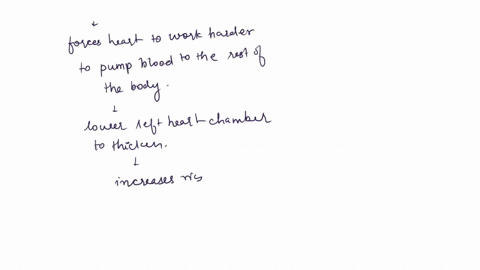 forces heart to work harder
to pump blood to the rest of
the body.
lower left heart chamber
to thicken.
increases ris